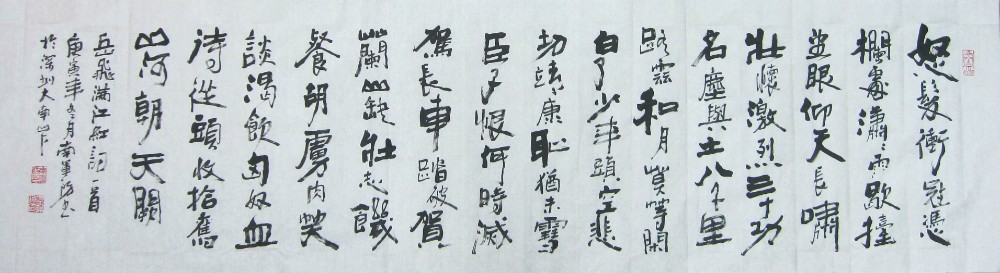 怒髮衝冠憑
欄處瀟〻雨歇擡
望眼仰天長嘯
壯懷激烈三十功
名塵與土八千里
路雲和月莫等閒
白了少年頭空悲
切靖康恥猶未雪
臣子恨何時滅
駕長車踏破賀
蘭山缺壯志饑
餐胡虜肉笑
談渴飲匈奴血
待從頭收拾舊
山河朝天闕
岳飛滿江紅詞一首
庚寅年冬月南軍書
於深圳大南山下